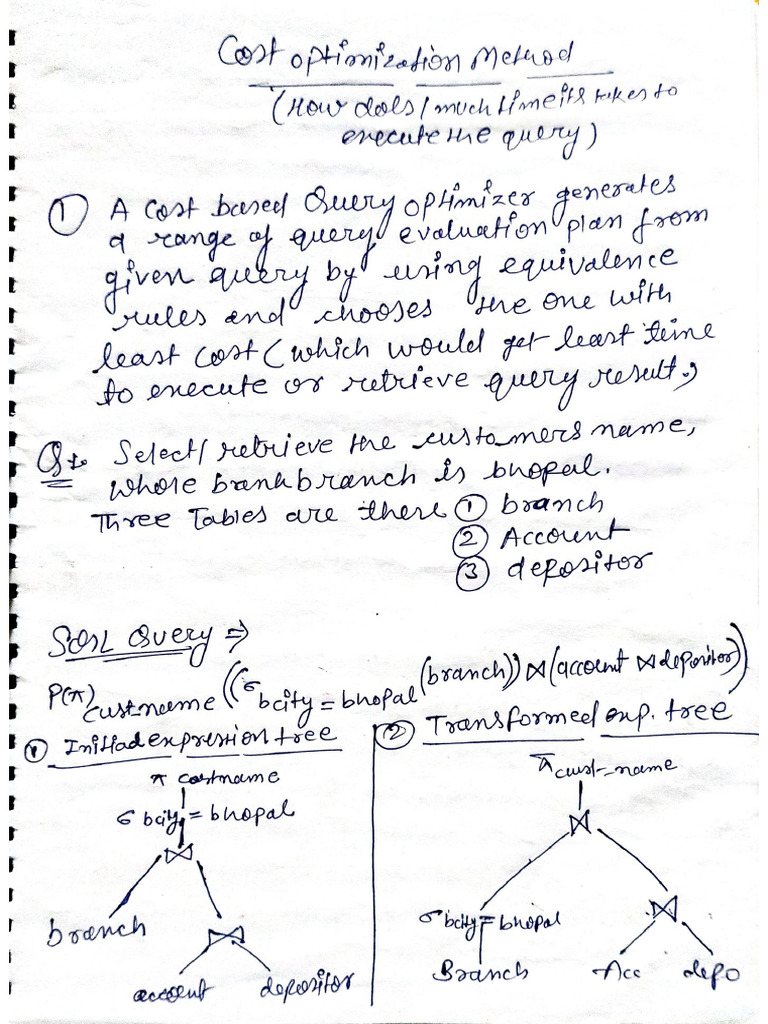 Cost optimization Method
(How dols/much time its takes to
execute the query)
① A cost based Query optimizer generates
a range of query evaluation plan from
given query by using equivalence
rules and chooses the one with
least cost (which would get least time
to execute or retrieve query result.)
Q1. Select/retrieve the customers name,
whose bank branch is bhopal.
Three Tables are there ① branch
② Account
③ depositor
SQL Query ⇒
P(π) cust-name ((σ bcity = bhopal (branch)) ⋈ (account ⋈ depositor))
① Initial expression tree
π costname
σ bcity = bhopal
⋈
branch
⋈
account depositor
② Transformed exp. tree
π cust-name
⋈
σ bcity = bhopal
⋈
Branch Acc depo